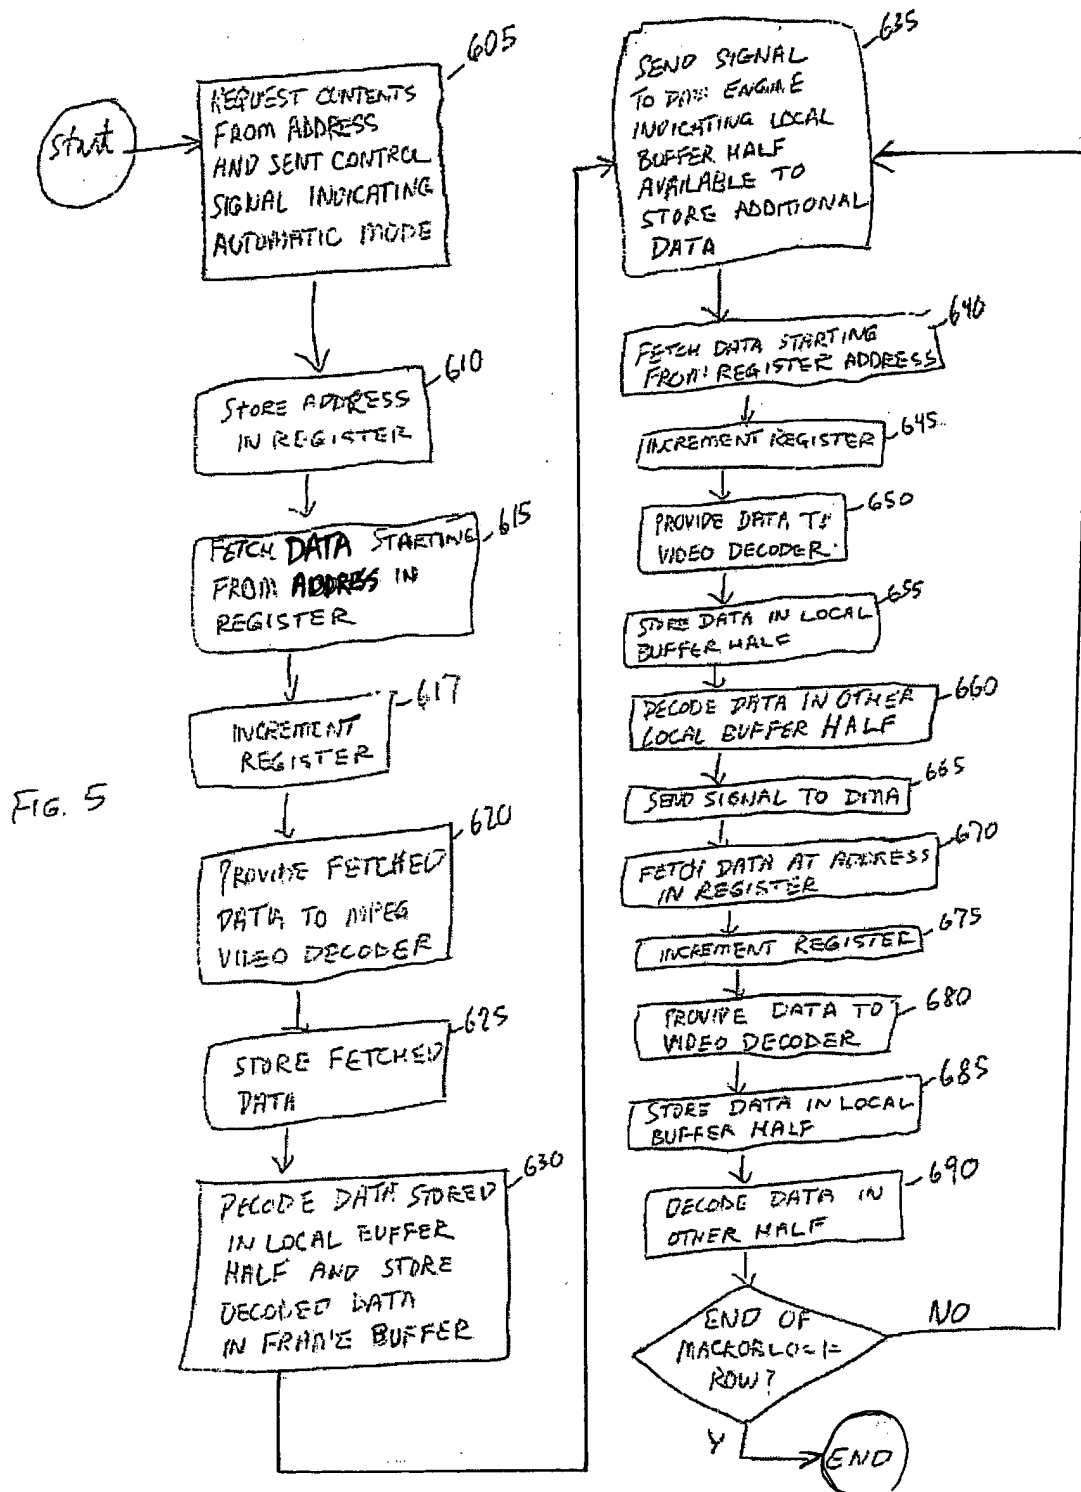 Start
605
REQUEST CONTENTS
FROM ADDRESS
AND SENT CONTROL
SIGNAL INDICATING
AUTOMATIC MODE
610
STORE ADDRESS
IN REGISTER
615
FETCH DATA STARTING
FROM ADDRESS IN
REGISTER
617
INCREMENT
REGISTER
FIG. 5
620
PROVIDE FETCHED
DATA TO MPEG
VIDEO DECODER
625
STORE FETCHED
DATA
630
DECODE DATA STORED
IN LOCAL BUFFER
HALF AND STORE
DECODED DATA
IN FRAME BUFFER
635
SEND SIGNAL
TO DMA ENGINE
INDICATING LOCAL
BUFFER HALF
AVAILABLE TO
STORE ADDITIONAL
DATA
640
FETCH DATA STARTING
FROM REGISTER ADDRESS
645
INCREMENT REGISTER
650
PROVIDE DATA TO
VIDEO DECODER
655
STORE DATA IN LOCAL
BUFFER HALF
660
DECODE DATA IN OTHER
LOCAL BUFFER HALF
665
SEND SIGNAL TO DMA
670
FETCH DATA AT ADDRESS
IN REGISTER
675
INCREMENT REGISTER
680
PROVIDE DATA TO
VIDEO DECODER
685
STORE DATA IN LOCAL
BUFFER HALF
690
DECODE DATA IN
OTHER HALF
END OF
ROW?
NO
Y
END